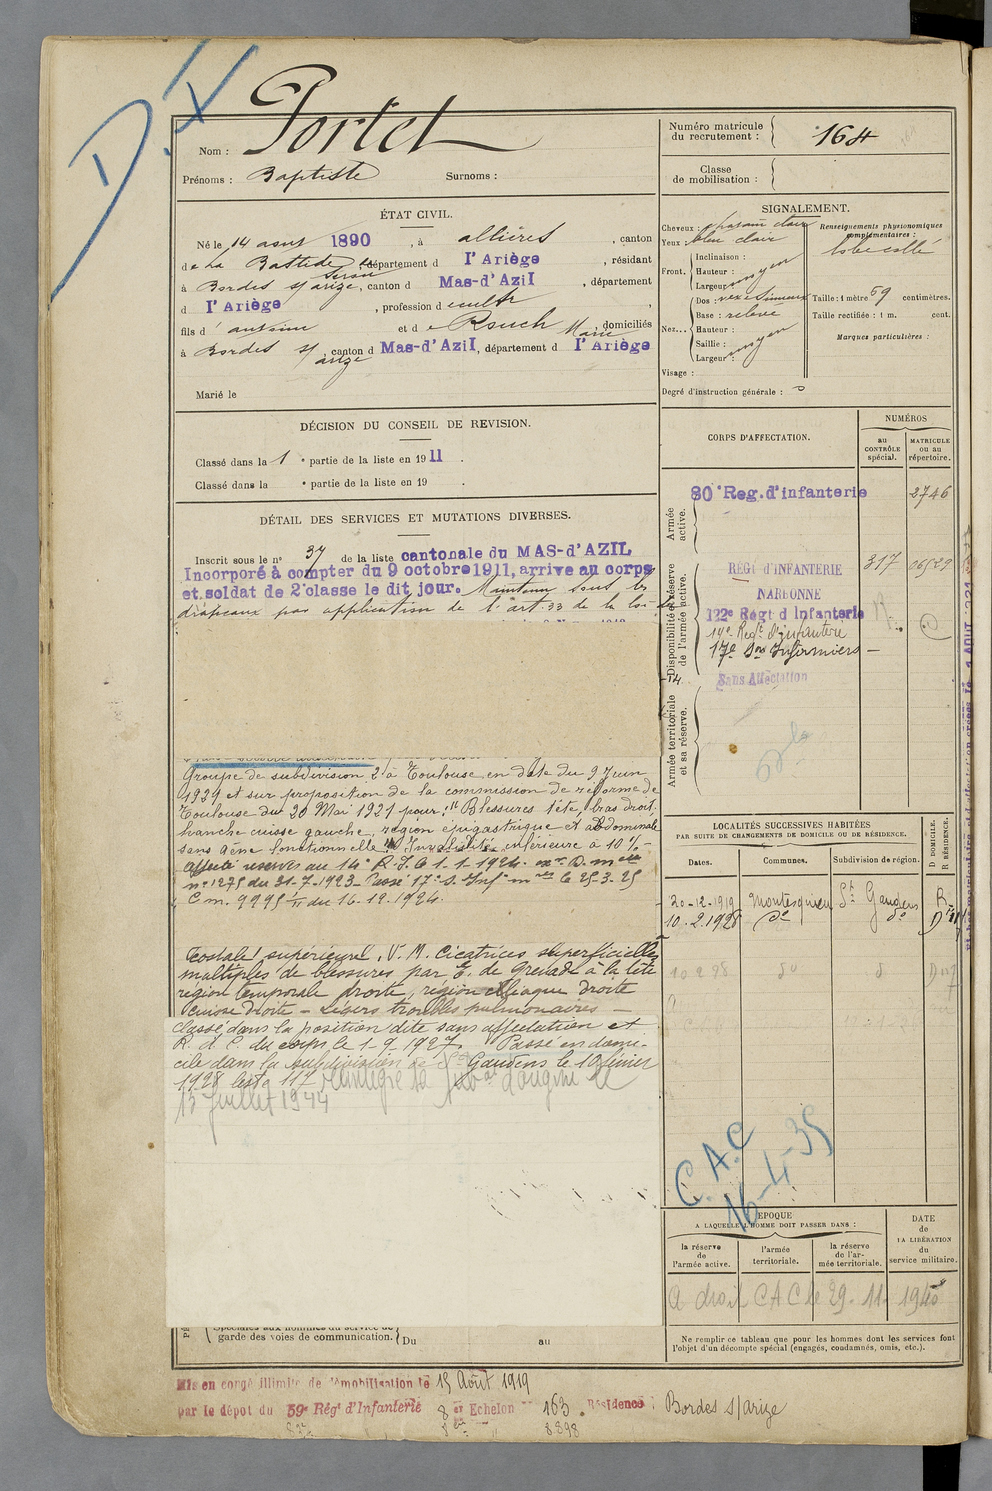 D.X
Nom : Portet
Prénoms : Baptiste Surnoms :
ÉTAT CIVIL.
Né le 14 aout 1890, à allières, canton
de La Bastide de Serou, département d l'Ariège, résidant
à Bordes s/ arize, canton d Mas-d'Azil, département
d l'Ariège, profession de cultr,
fils d' antoine et de Rouch Marie, domiciliés
à Bordes s/ arize, canton d Mas-d'Azil, département d l'Ariège
Marié le
DÉCISION DU CONSEIL DE REVISION.
Classé dans la 1 e partie de la liste en 1911.
Classé dans la e partie de la liste en 19 .
DÉTAIL DES SERVICES ET MUTATIONS DIVERSES.
Inscrit sous le n° 37 de la liste cantonale du MAS-d'AZIL
Incorporé à compter du 9 octobre 1911, arrive au corps
et soldat de 2e classe le dit jour. Maintenu sous les
drapeaux par application de l'art. 33 de la loi
Groupe de subdivision 2 à Toulouse en date du 9 Juin
1921 et sur proposition de la commission de réforme de
Toulouse du 20 Mai 1921 pour : "Blessures tête, bras droit,
hanche cuisse gauche, région épigastrique et abdominale
sans gêne fonctionnelle" Invalidité inférieure à 10 % -
Affecté réserves au 14e R.I. le 1-1-1924.
n° 1275 du 31-7-1923 - Passé 17e S. Inf le 25-3-25
C m. 9995 du 16.12.1924.
costale supérieure. V. M. Cicatrices superficielles
multiples de blessures par E. de Grenade à la tête
région temporale droite, région iliaque droite
cuisse droite - Légers troubles pulmonaires -
Classé dans la position dite sans affectation et
R. d. C. du corps le 1-9-1927. Passé en domi-
cile dans la subdivision de St Gaudens le 10 février
1928 117 réintegre sa d'origine le
13 Juillet 1944
Spéciales aux hommes du service de
garde des voies de communication. Du au
Mis en congé illimité de démobilisation le 15 Août 1919
par le dépot du 59e Régt d'Infanterie 8 Echelon 163. Résidence : Bordes s/arize
8898
Numéro matricule
du recrutement : 164
Classe
de mobilisation :
SIGNALEMENT.
Cheveux : chatain clair
Yeux : bleu clair
Front, Inclinaison :
Hauteur : moyen
Largeur :
Nez... Dos : vexe sinueux
Base : relevé
Hauteur :
Saillie : moyen
Largeur :
Visage :
Renseignements physionomiques
complémentaires :
lobe collé
Taille : 1 mètre 69 centimètres.
Taille rectifiée : 1 m. cent.
Marques particulières :
Degré d'instruction générale : 3
CORPS D'AFFECTATION.
NUMÉROS
au
CONTRÔLE
spécial.
MATRICULE
ou au
répertoire.
Armée
active.
80e Reg. d'infanterie 2746
Disponibilité et réserve
de l'armée active.
REGt d'INFANTERIE 317 06529
NARBONNE
122e Régt d Infanterie
14e Regt d'Infanterie
17e Son Infirmiers -
Sans Affectation
Armée territoriale
et sa réserve.
LOCALITÉS SUCCESSIVES HABITÉES
PAR SUITE DE CHANGEMENTS DE DOMICILE OU DE RÉSIDENCE.
Dates. Communes. Subdivision de région. D DOMICILE. R RÉSIDENCE.
20-12-1919 Montesquieu St Gaudens R
10.2.1928 do do D
C.A.C
16-4-35
EPOQUE
A LAQUELLE L'HOMME DOIT PASSER DANS :
la réserve
de
l'armée active.
l'armée
territoriale.
la réserve
de l'ar-
mée territoriale.
DATE
de
LA LIBÉRATION
du
service militaire.
A droit CAC le 29-11-1940
Ne remplir ce tableau que pour les hommes dont les services font
l'objet d'un décompte spécial (engagés, condamnés, omis, etc.).